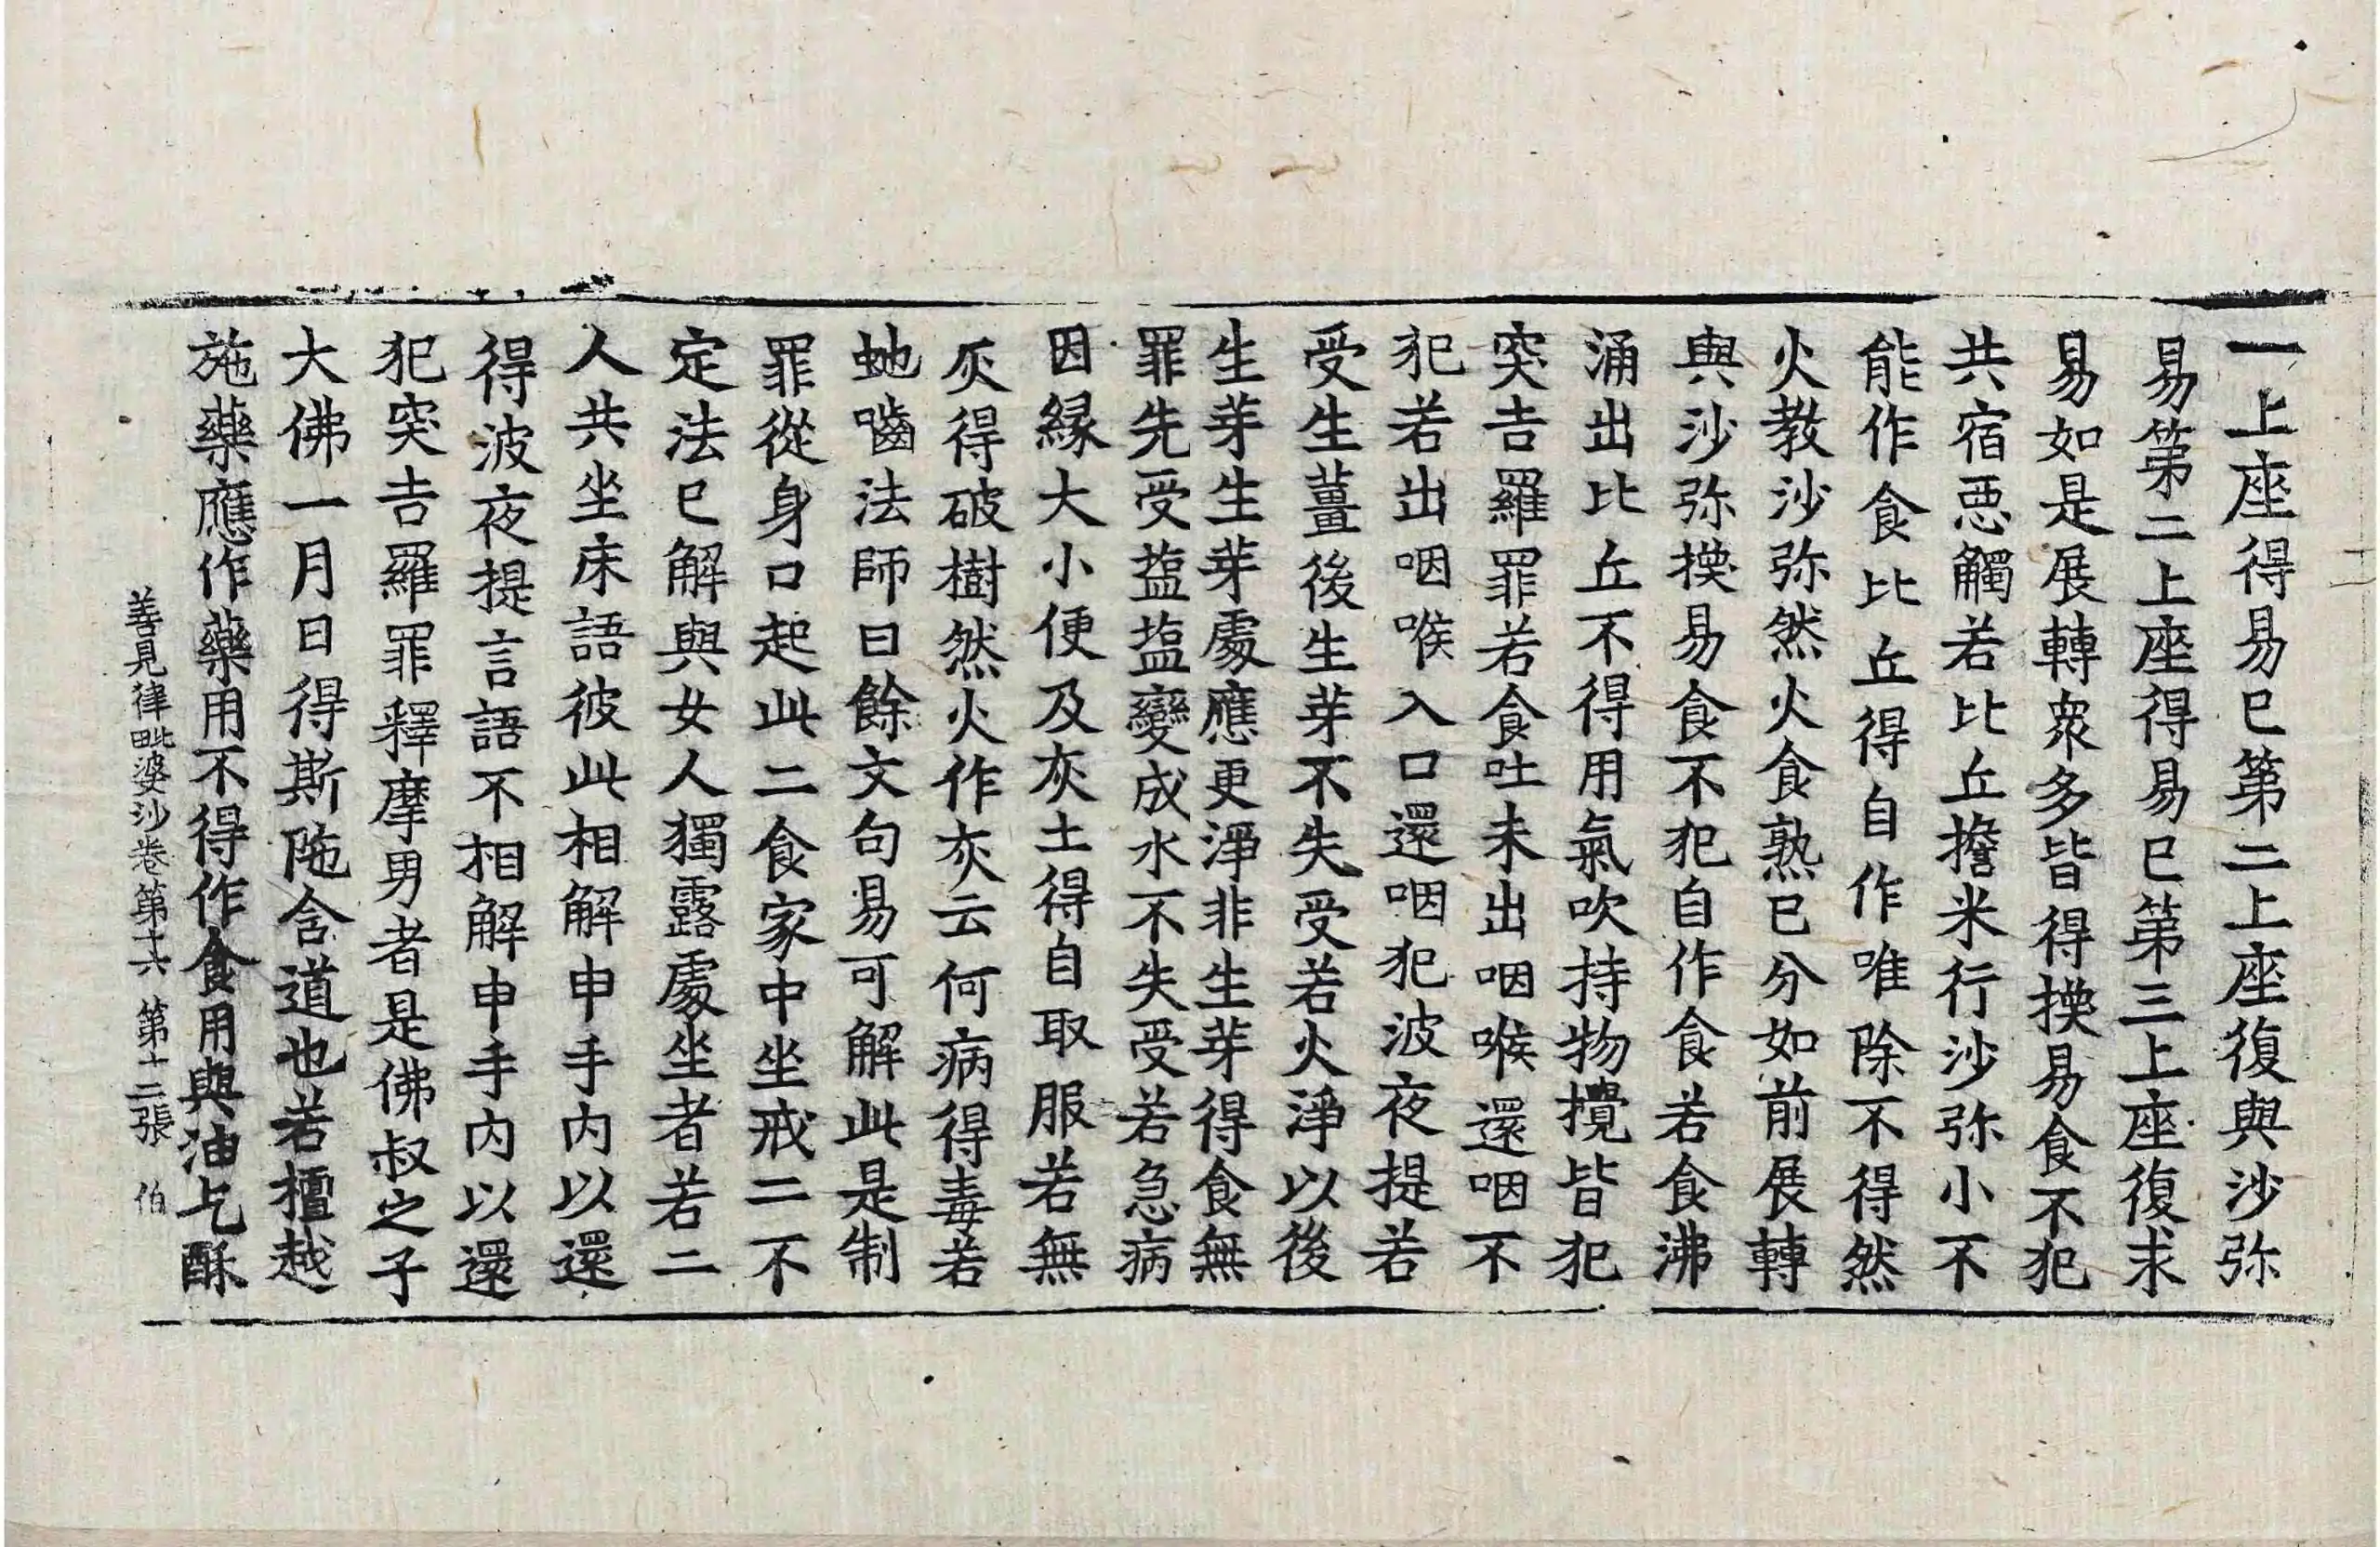 一上座得易已第二上座復與沙弥
易第二上座得易已第三上座復求
易如是展轉衆多皆得揬易食不犯
共宿惡觸若比丘擔米行沙弥小不
能作食比丘得自作唯除不得然
火教沙弥然火食熟已分如前展轉
與沙弥揬易食不犯自作食若食沸
涌出比丘不得用氣吹持物攪皆犯
突吉羅罪若食吐未出咽喉還咽不
犯若出咽喉入口還咽犯波夜提若
受生薑後生芽不失受若火淨以後
生芽生芽處應更淨非生芽得食無
罪先受塩塩變成水不失受若急病
因緣大小便及灰土得自取服若無
灰得破樹然火作灰云何病得毒若
虵嚙法師曰餘文句易可解此是制
罪從身口起此二食家中坐戒二不
定法已解與女人獨露處坐者若二
人共坐床語彼此相解申手内以還
得波夜提言語不相解申手内以還
犯突吉羅罪釋摩男者是佛叔之子
大佛一月日得斯陁含道也若檀越
施藥應作藥用不得作食用與油乞酥
善見律毗婆沙卷第十六 第十二張 伯